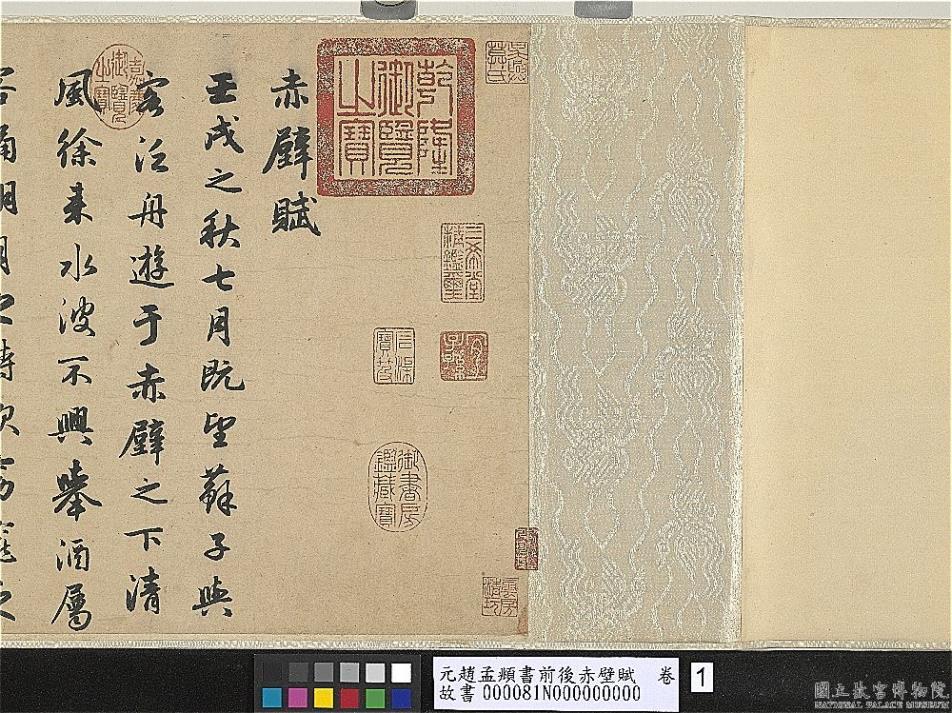 赤壁賦
壬戌之秋七月既望蘇子與
客泛舟遊于赤壁之下清
風徐来水波不興舉酒屬
乾隆御覽之寶
嘉慶御覽之寶
三希堂精鑑璽
宜子孫
石渠寶笈
御書房鑑藏寶
元趙孟頫書前後赤壁賦 卷 1
故書 000081N000000000
國立故宮博物院
NATIONAL PALACE MUSEUM